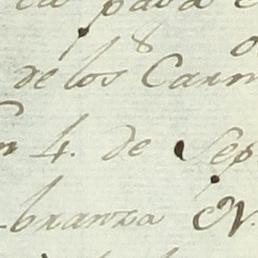 para
de los Carm
n 4. de Sep
branza N.